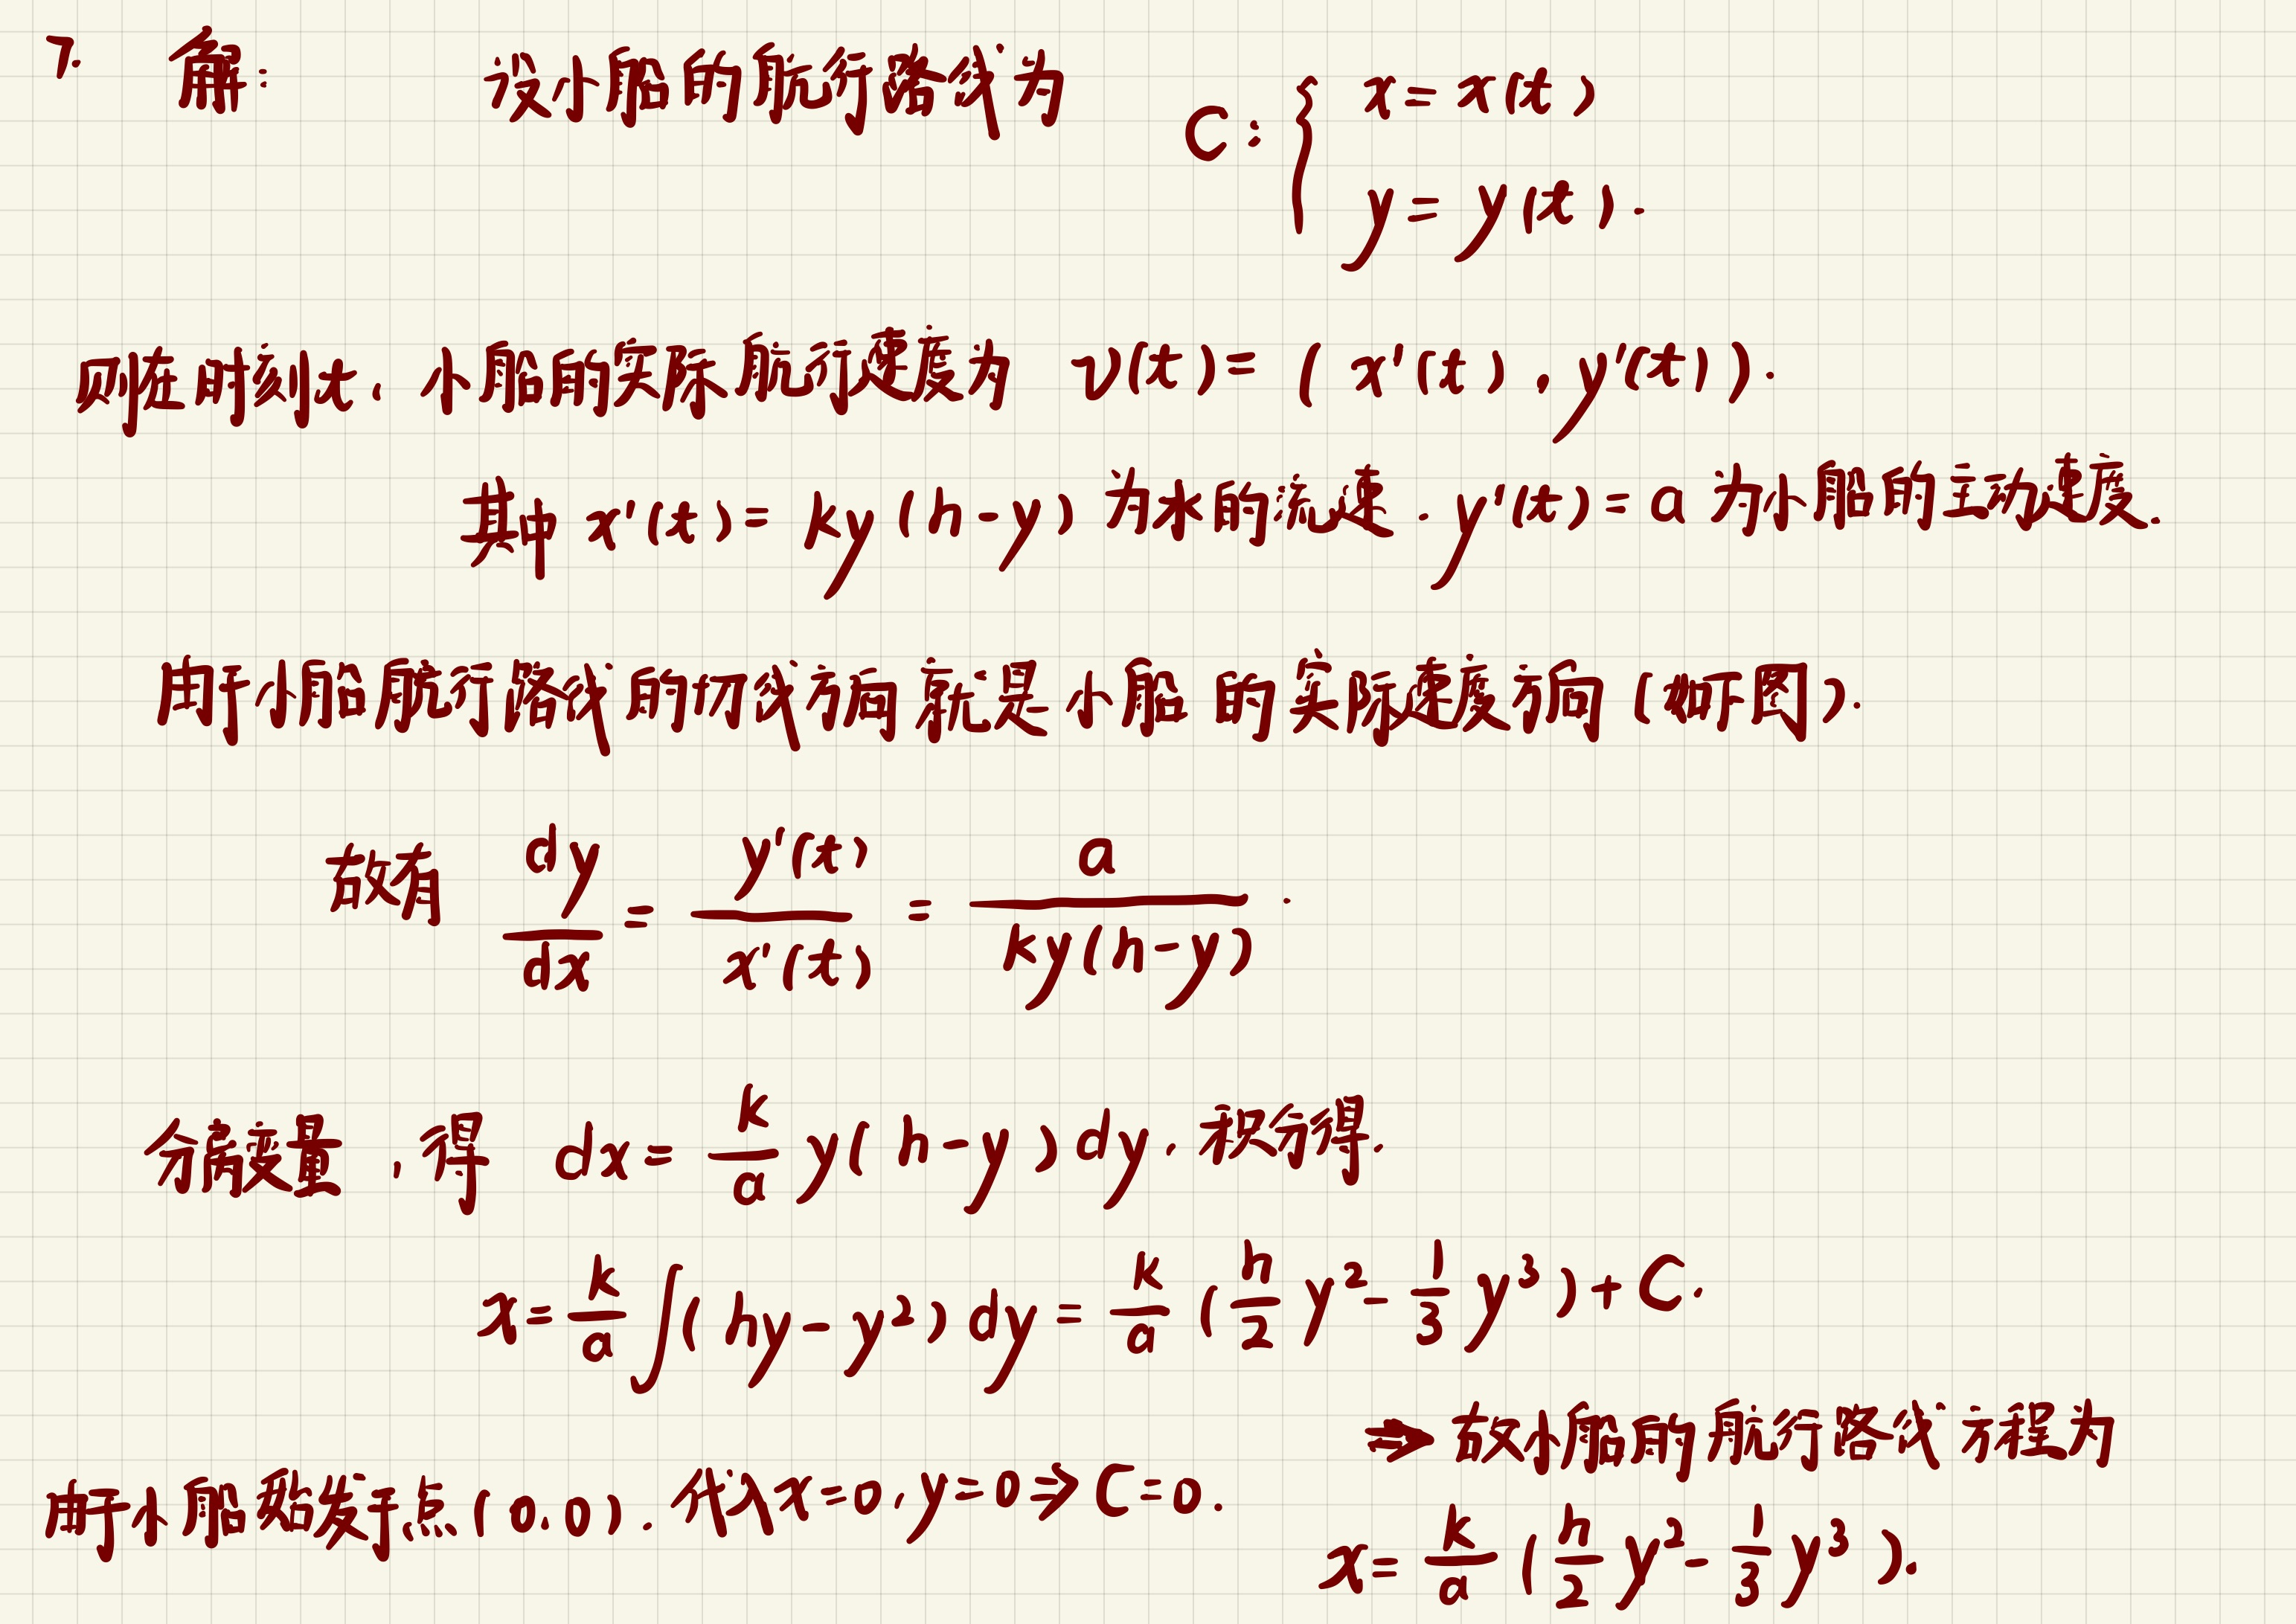 7. 解: 设小船的航行路线为 C: { x = x(t)
y = y(t).
则在时刻t, 小船的实际航行速度为 v(t) = ( x'(t), y'(t) ).
其中 x'(t) = ky(h-y) 为水的流速. y'(t) = a 为小船的主动速度.
由于小船航行路线的切线方向就是小船的实际速度方向 (如下图).
故有 dy/dx = y'(t)/x'(t) = a/ky(h-y).
分离变量, 得 dx = k/a y(h-y)dy. 积分得.
x = k/a ∫(hy-y²)dy = k/a (h/2 y² - 1/3 y³) + C.
由于小船始发于点(0,0). 代入x=0, y=0 ⇒ C=0.
⇒ 故小船的航行路线方程为
x = k/a (h/2 y² - 1/3 y³).